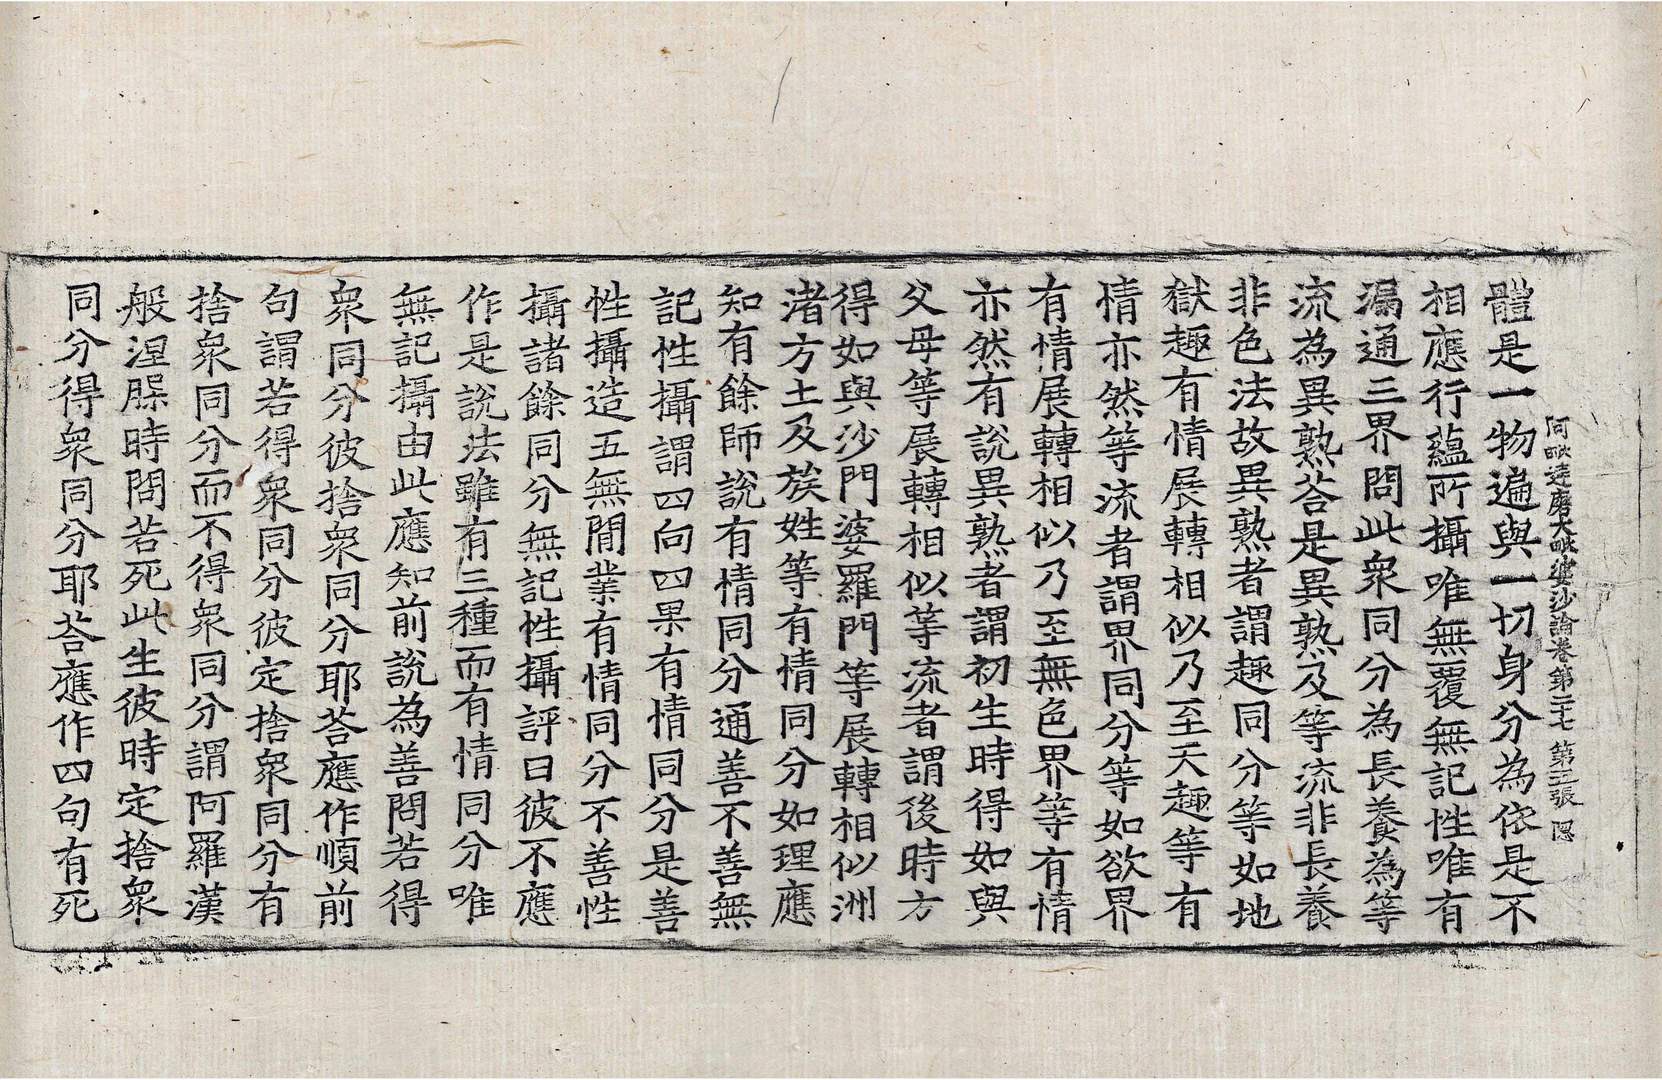 阿毗達磨大毗婆沙論卷第二十七 第三張 隱
體是一物遍與一切身分為依是不
相應行蘊所攝唯無覆無記性唯有
漏通三界問此衆同分為長養為等
流為異熟荅是異熟及等流非長養
非色法故異熟者謂趣同分等如地
獄趣有情展轉相似乃至天趣等有
情亦然等流者謂界同分等如欲界
有情展轉相似乃至無色界等有情
亦然有說異熟者謂初生時得如與
父母等展轉相似等流者謂後時方
得如與沙門婆羅門等展轉相似洲
渚方土及族姓等有情同分如理應
知有餘師說有情同分通善不善無
記性攝謂四向四果有情同分是善
性攝造五無閒業有情同分不善性
攝諸餘同分無記性攝評曰彼不應
作是說法雖有三種而有情同分唯
無記攝由此應知前說為善問若得
衆同分彼捨衆同分耶荅應作順前
句謂若得衆同分彼定捨衆同分有
捨衆同分而不得衆同分謂阿羅漢
般涅槃時問若死此生彼時定捨衆
同分得衆同分耶荅應作四句有死